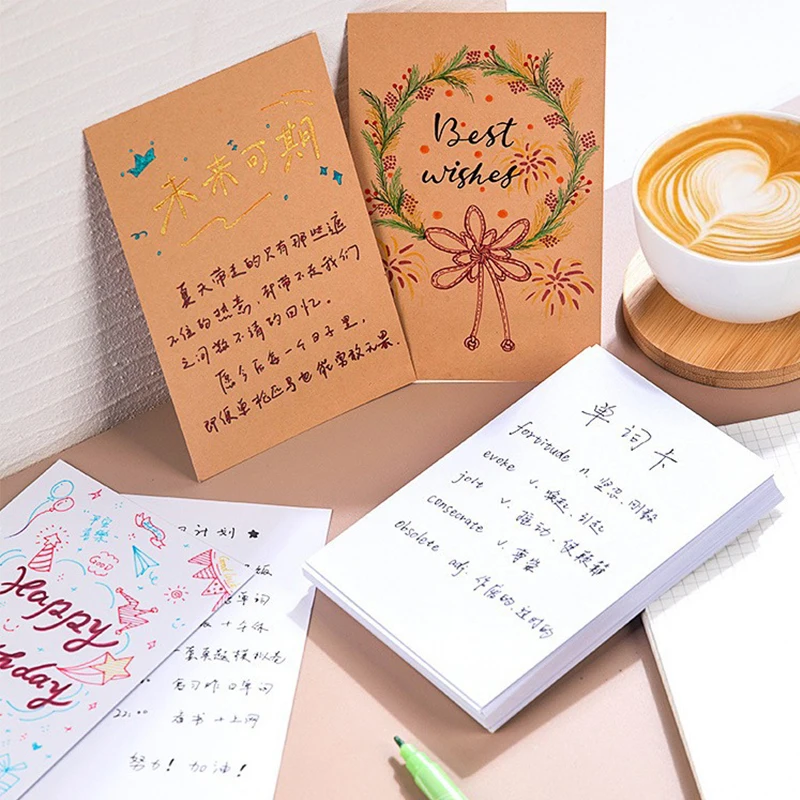 未来可期
夏天带走的只有那些遮
不住的热意,却带不走我们
之间数不清的回忆。
愿今后每一个日子里,
即便单枪匹马也能勇敢无畏.
Best
wishes
单词卡
fortitude n. 坚忍,刚毅
evoke v. 唤起,引起
jolt v. 摇动,使颠簸
consecrate v. 奉献
obsolete adj. 作废的,过时的
平安
喜乐
GOOD
Happy
计划
单词
一套真题模拟卷
复习昨日单词
22:00 看书+上网
努力! 加油!